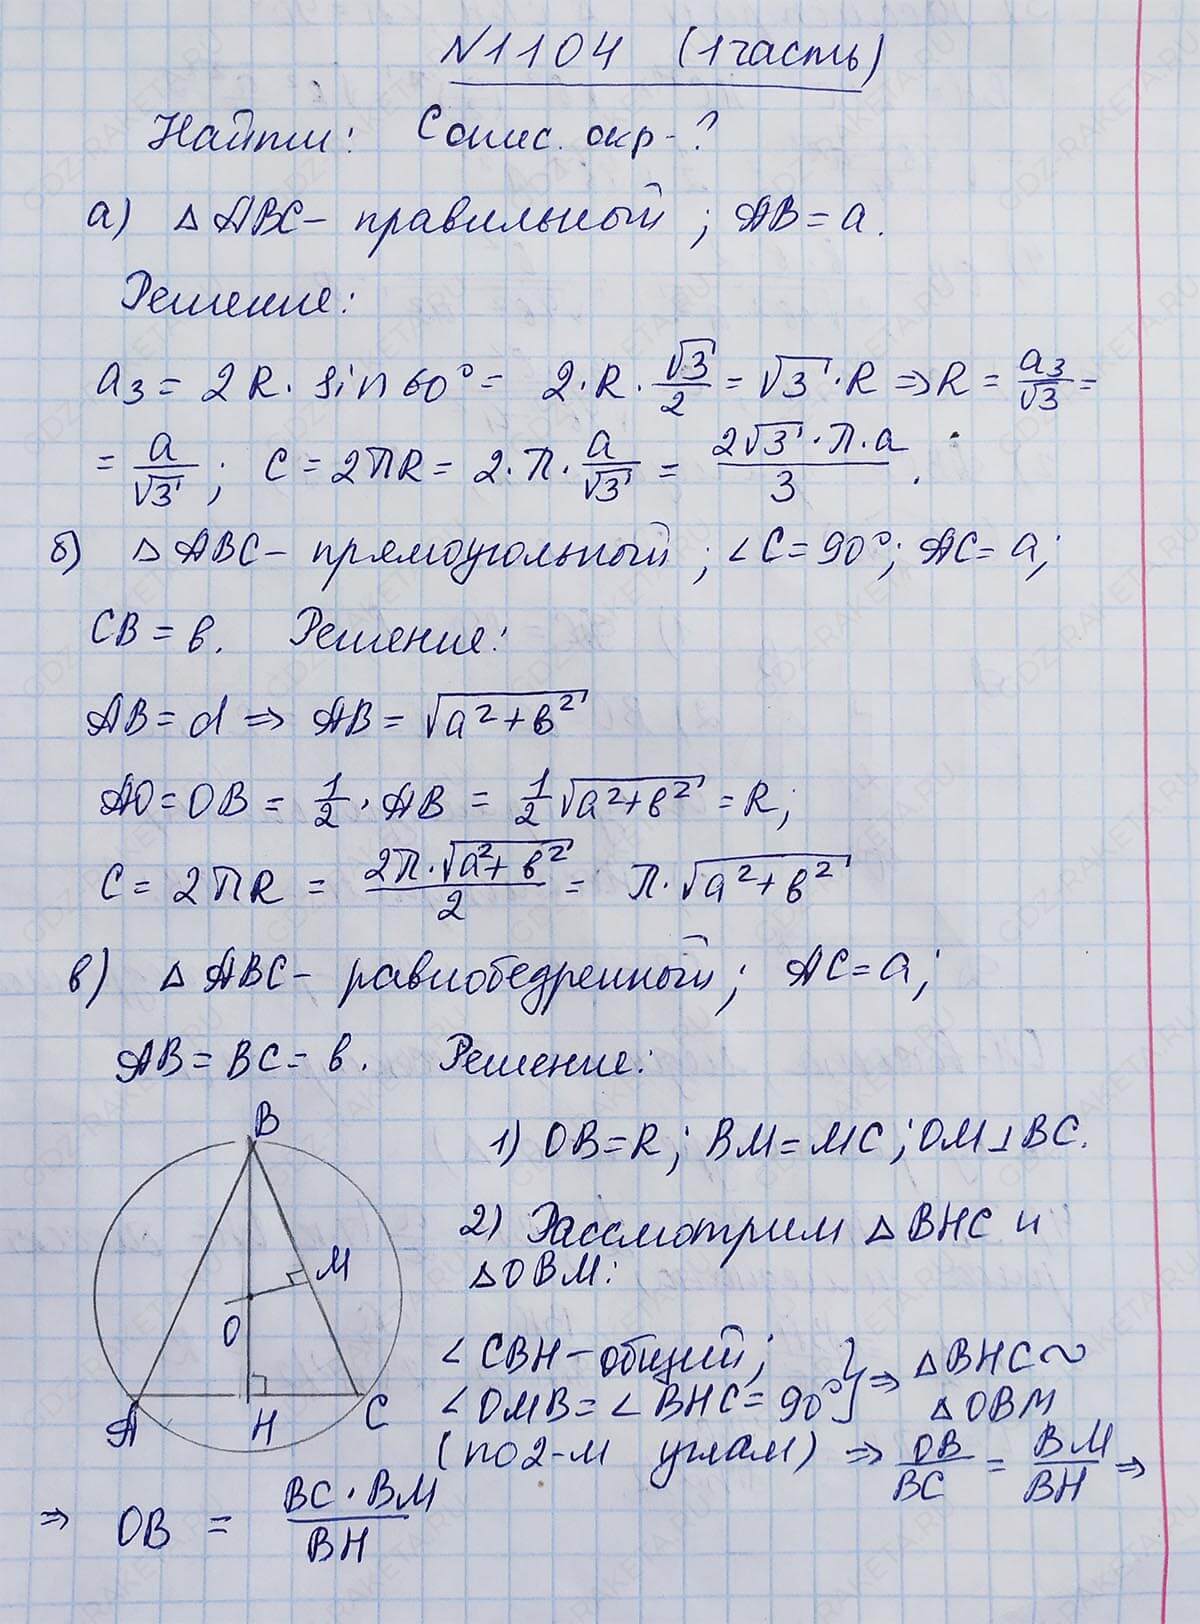 N1104 (1 часть)
Найти: Cопис. окр - ?
а) △ABC - правильный; AB = a.
Решение:
a₃ = 2R · sin 60° = 2 · R · √3/2 = √3 · R ⇒ R = a₃/√3 =
= a/√3; C = 2πR = 2 · π · a/√3 = 2√3 · π · a/3.
б) △ABC - прямоугольный; ∠C = 90°; AC = a;
CB = в. Решение:
AB = d ⇒ AB = √(a² + в²)
AO = OB = 1/2 · AB = 1/2 √(a² + в²) = R;
C = 2πR = 2π · √(a² + в²)/2 = π · √(a² + в²)
в) △ABC - равнобедренный; AC = a;
AB = BC = в. Решение:
B
M
O
A
H
C
1) OB = R; BM = MC; OM ⊥ BC.
2) Рассмотрим △BHC и
△OBM:
∠CBH - общий;
∠OMB = ∠BHC = 90° } ⇒ △BHC ~
△OBM
(по 2-м углам) ⇒ OB/BC = BM/BH ⇒
⇒ OB = BC · BM/BH